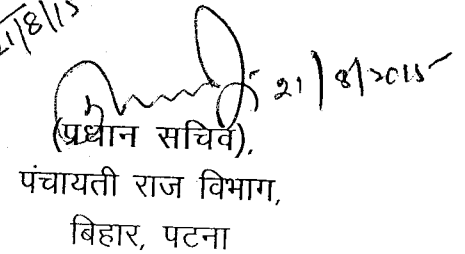 21/8/15
21/8/2015
(प्रधान सचिव),
पंचायती राज विभाग,
बिहार, पटना